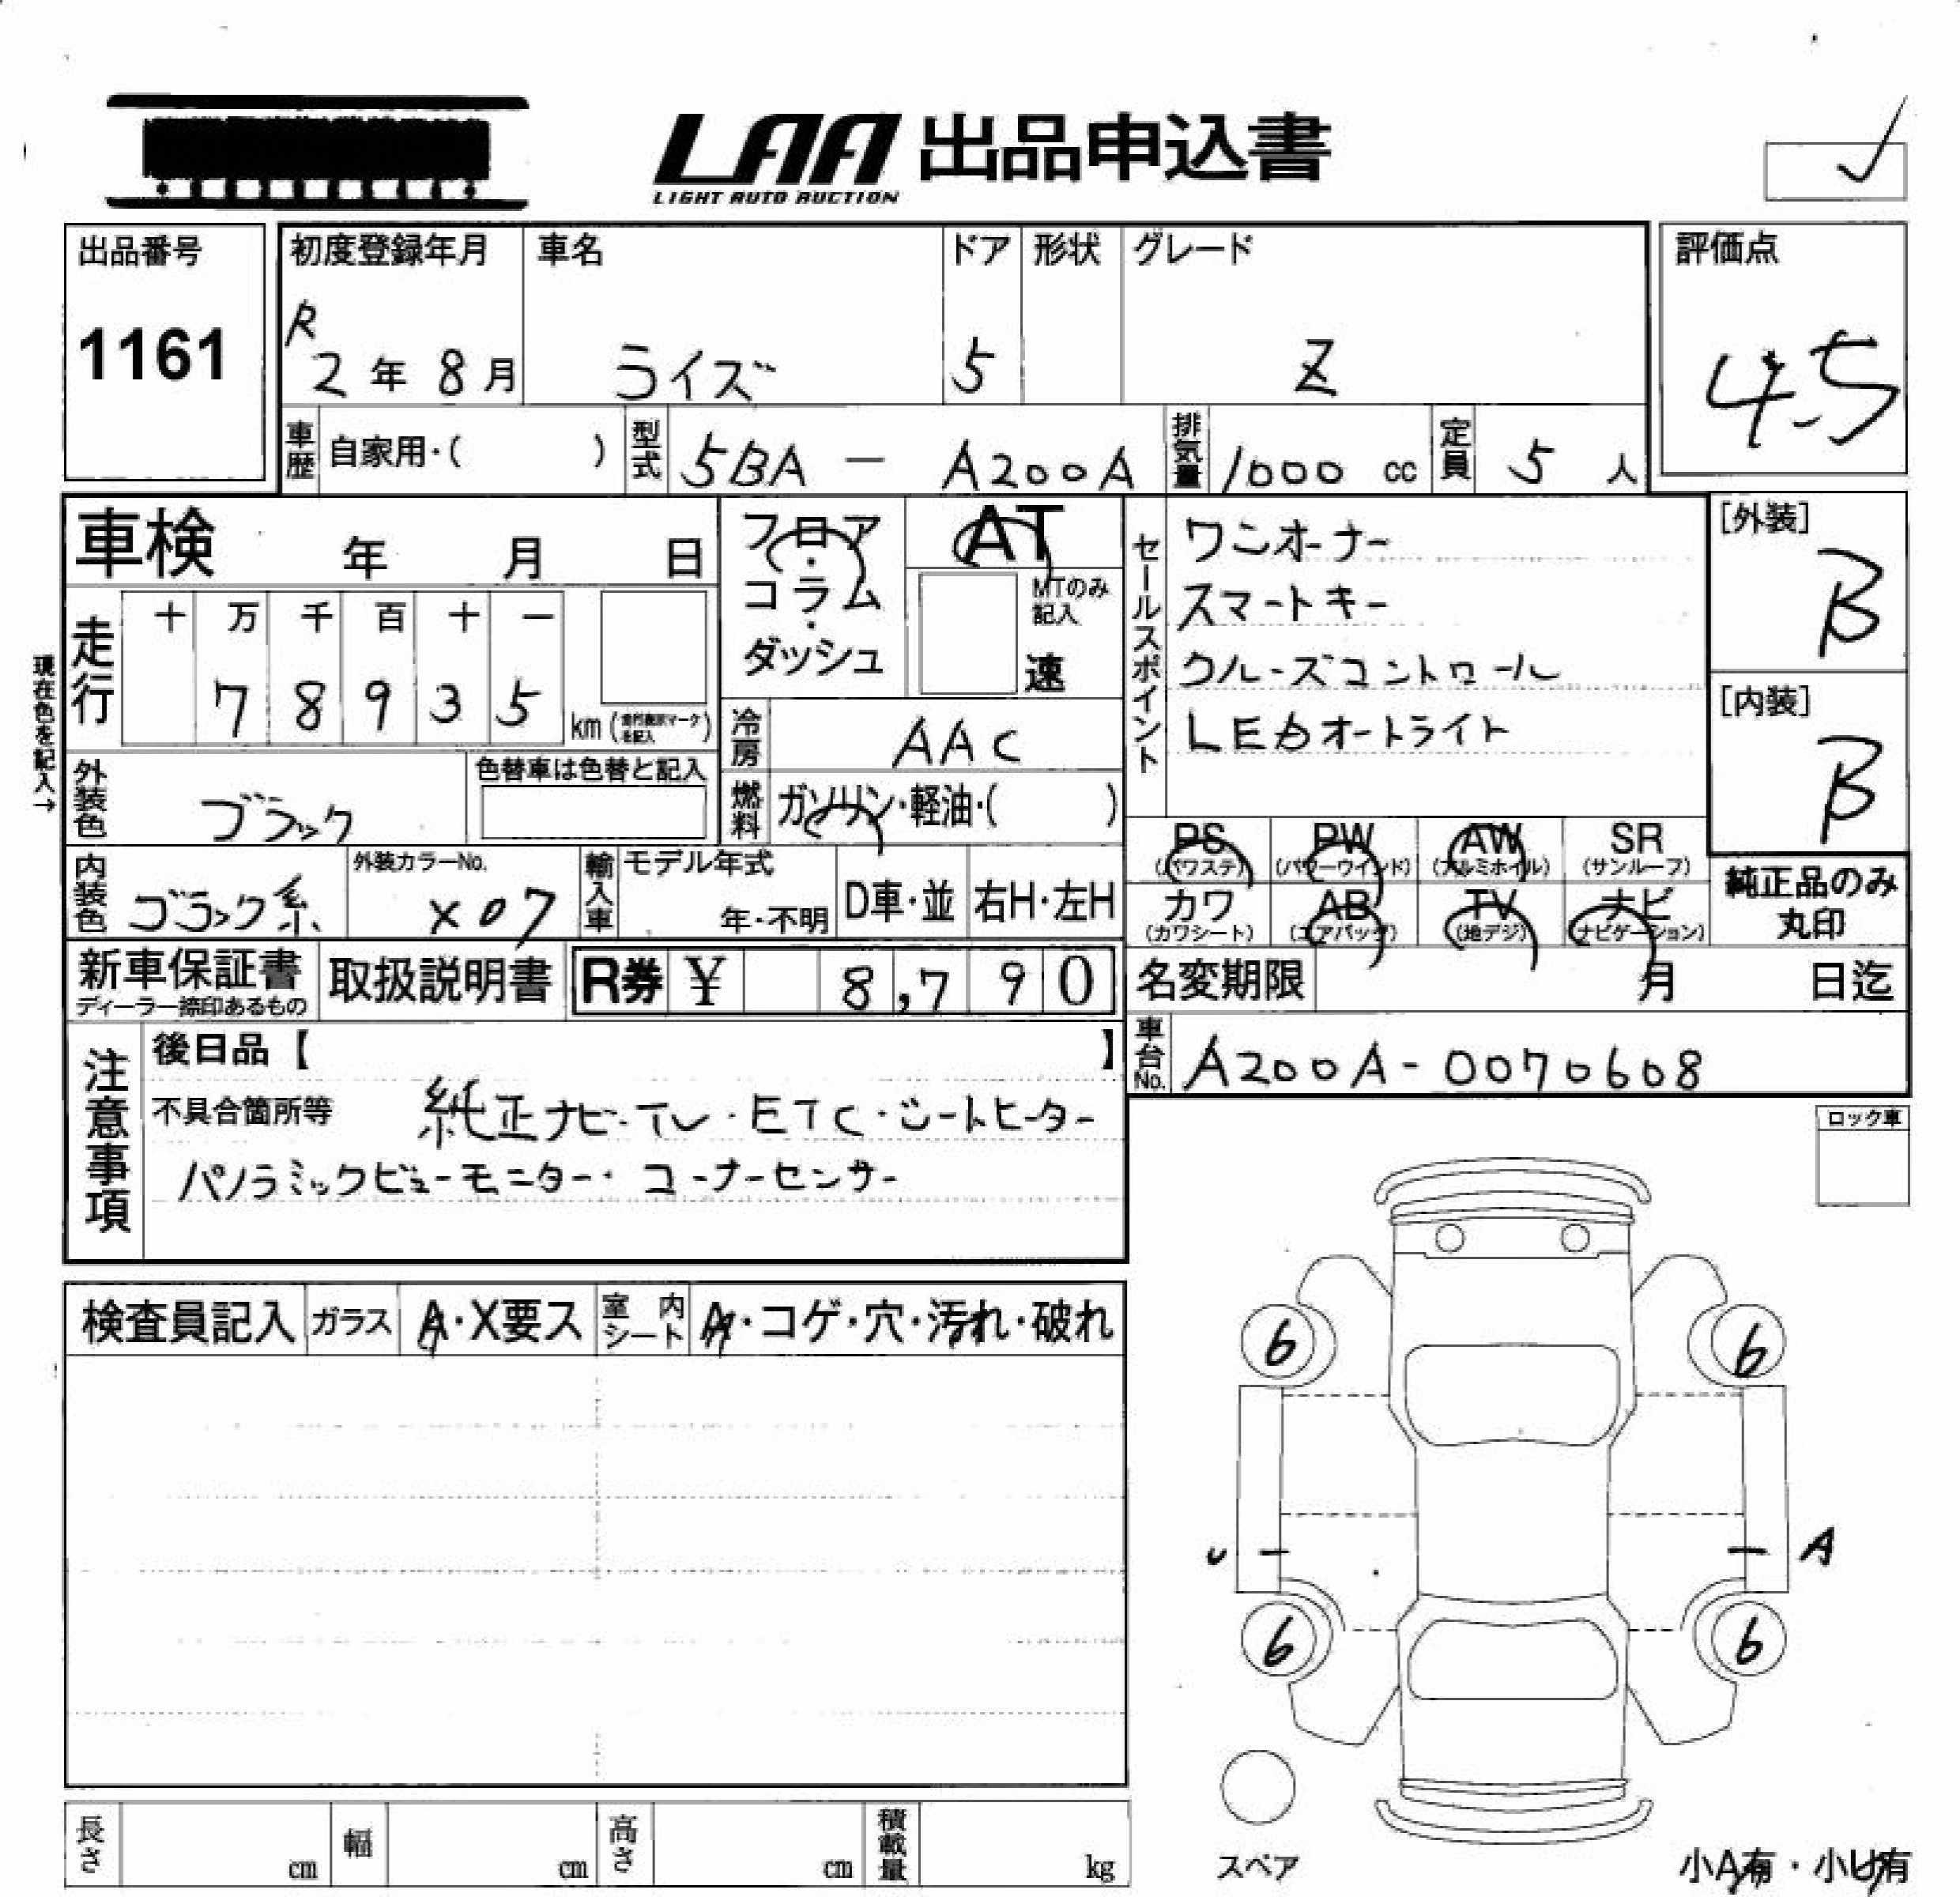 LAA 出品申込書
LIGHT AUTO AUCTION
出品番号
1161
初度登録年月
R
2年 8月
車名
ライズ
ドア
5
形状
グレード
Z
評価点
4.5
車歴 自家用・( )
型式 5BA - A200A
排気量 1000 cc
定員 5 人
車検 年 月 日
現在色を記入→
走行
十 万 千 百 十 一
7 8 9 3 5 km
フロア・
コラム・
ダッシュ
AT
MTのみ
記入
速
セールスポイント
ワンオーナー
スマートキー
クルーズコントロール
LEDオートライト
[外装]
B
[内装]
B
外装色 ブラック
色替車は色替と記入
冷房 AAC
燃料 ガソリン・軽油・( )
内装色 ブラック系
外装カラーNo.
X07
輸入車
モデル年式
年・不明
D車・並
右H・左H
PS
(パワステ)
PW
(パワーウインド)
AW
(アルミホイル)
SR
(サンルーフ)
カワ
(カワシート)
AB
(エアバッグ)
TV
(地デジ)
ナビ
(ナビゲーション)
純正品のみ
丸印
新車保証書
ディーラー捺印あるもの
取扱説明書
R券 ¥ 8,790
名変期限 月 日迄
車台No. A200A-0070608
注意事項
後日品【 】
不具合箇所等 純正ナビ・TV・ETC・シートヒーター
パノラミックビューモニター・コーナーセンサー
ロック車
検査員記入
ガラス A・X要ス
室内シート A・コゲ・穴・汚れ・破れ
6 6
U A
6 6
スペア
小A有・小U有
長さ cm
幅 cm
高さ cm
積載量 kg